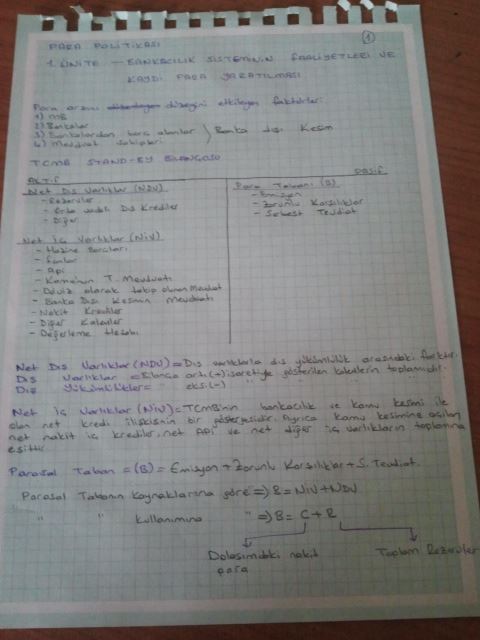 1
PARA POLİTİKASI
1. ÜNİTE – BANKACILIK SİSTEMİNİN FAALİYETLERİ VE
KAYDİ PARA YARATILMASI
Para arzını düzeyini etkileyen faktörler:
1) MB
2) Bankalar
3) Bankalardan borç alanlar
4) Mevduat sahipleri
Banka dışı Kesim
TCMB STAND-BY BİLANÇOSU
AKTİF
PASİF
Net Dış Varlıklar (NDV)
- Rezervler
- Orta vadeli Dış Krediler
- Diğer
Para Tabanı (B)
- Emisyon
- Zorunlu Karşılıklar
- Serbest Tevdiat
Net İç Varlıklar (NİV)
- Hazine Borçları
- Fonlar
- APİ
- Kamu'nun T. Mevduatı
- Döviz olarak takip olunan Mevduat
- Banka Dışı Kesimin Mevduatı
- Nakit Krediler
- Diğer Kalemler
- Değerleme Hesabı
Net Dış Varlıklar (NDV) = Dış varlıklarla dış yükümlülük arasındaki farktır.
Dış Varlıklar = Bilanço artı (+) işaretiyle gösterilen kalemlerin toplamıdır.
Dış Yükümlülükler = " eksi (-) "
Net İç Varlıklar (NİV) = TCMB'nin bankacılık ve kamu kesimi ile
olan net kredi ilişkisinin bir göstergesidir. Ayrıca kamu kesimine açılan
net nakit iç krediler, net APİ ve net diğer iç varlıkların toplamına
eşittir.
Parasal Taban = (B) = Emisyon + Zorunlu Karşılıklar + S. Tevdiat.
Parasal Tabanın Kaynaklarına göre => B = NİV + NDV
" " Kullanımına " => B = C + R
Dolaşımdaki nakit para
Toplam Rezervler